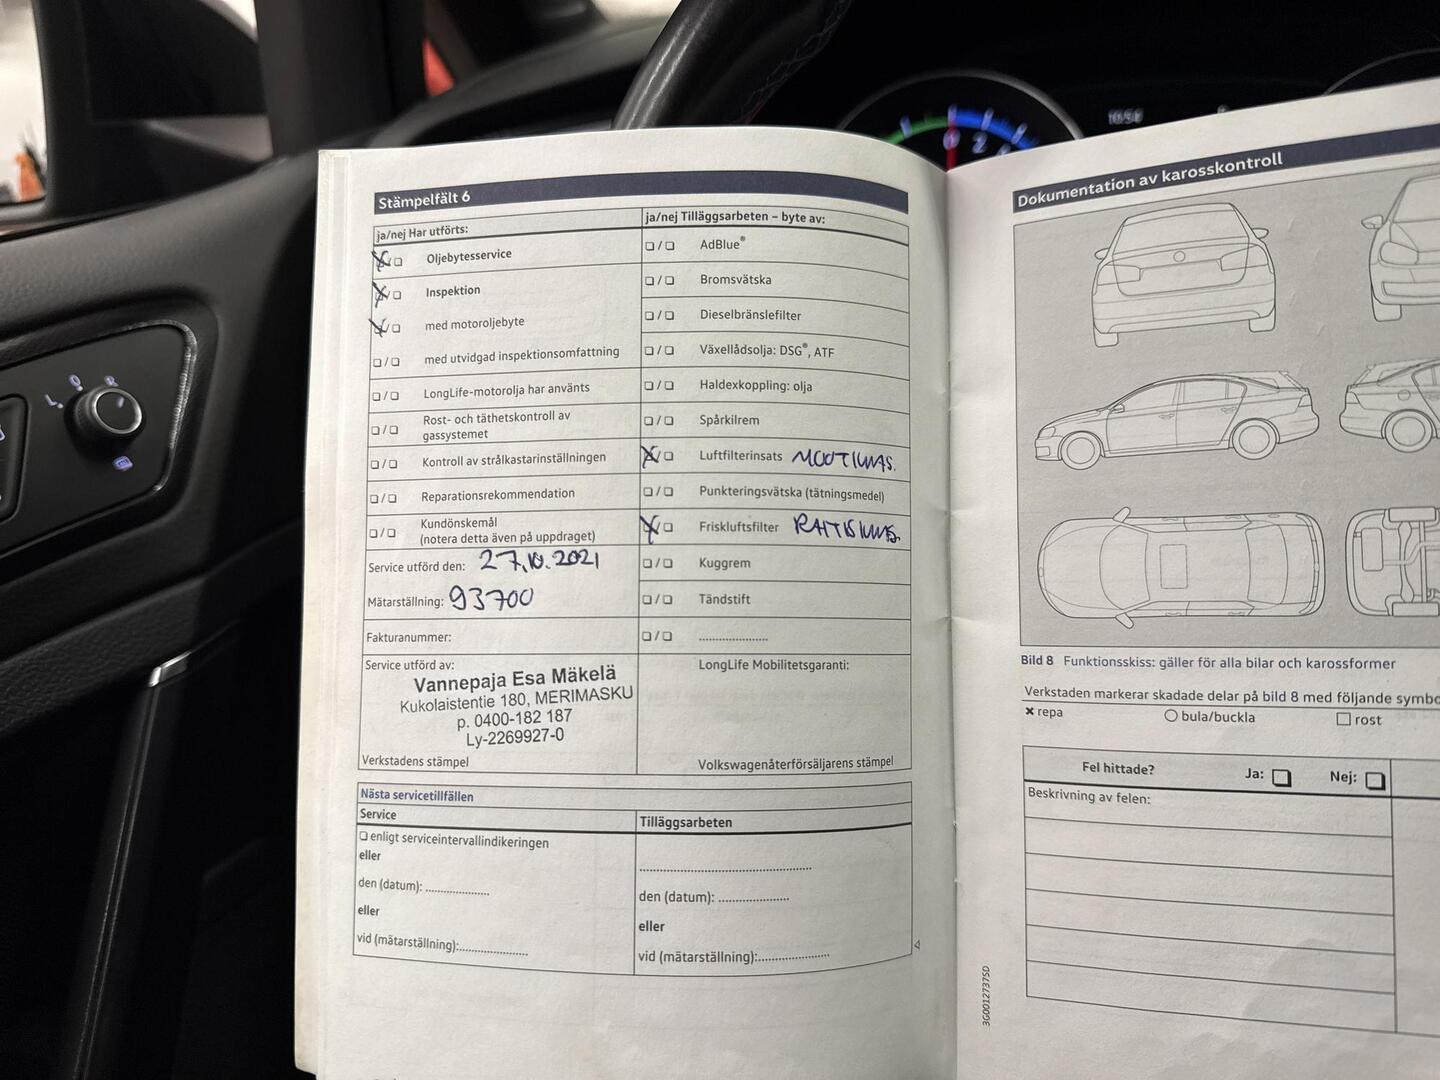 Stämpelfält 6
ja/nej Har utförts:
Oljebytesservice
Inspektion
med motoroljebyte
med utvidgad inspektionsomfattning
LongLife-motorolja har använts
Rost- och täthetskontroll av
gassystemet
Kontroll av strålkastarinställningen
Reparationsrekommendation
Kundönskemål
(notera detta även på uppdraget)
Service utförd den: 27.10.2021
Mätarställning: 93700
Fakturanummer:
Service utförd av:
Vannepaja Esa Mäkelä
Kukolaistentie 180, MERIMASKU
p. 0400-182 187
Ly-2269927-0
Verkstadens stämpel
ja/nej Tilläggsarbeten – byte av:
AdBlue®
Bromsvätska
Dieselbränslefilter
Växellådsolja: DSG®, ATF
Haldexkoppling: olja
Spårkilrem
Luftfilterinsats
Punkteringsvätska (tätningsmedel)
Friskluftsfilter
Kuggrem
Tändstift
LongLife Mobilitetsgaranti:
Volkswagenåterförsäljarens stämpel
Nästa servicetillfällen
Service
enligt serviceintervallindikeringen
eller
den (datum):
eller
vid (mätarställning):
Tilläggsarbeten
den (datum):
eller
vid (mätarställning):
Dokumentation av karosskontroll
Bild 8 Funktionsskiss: gäller för alla bilar och karossformer
Verkstaden markerar skadade delar på bild 8 med följande symbo
repa
bula/buckla
rost
Fel hittade? Ja: Nej:
Beskrivning av felen:
3G0012737SD
L 0 R
0 2